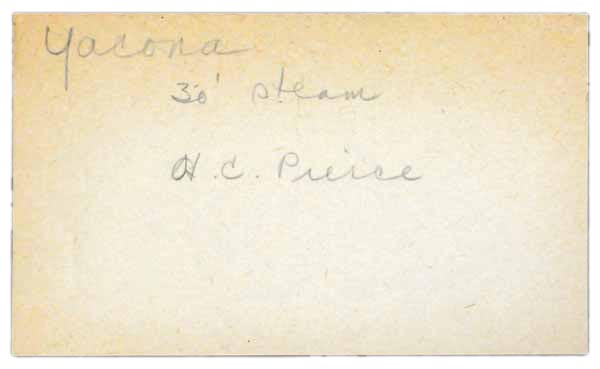 Yacona
30' steam
H. C. Pierce